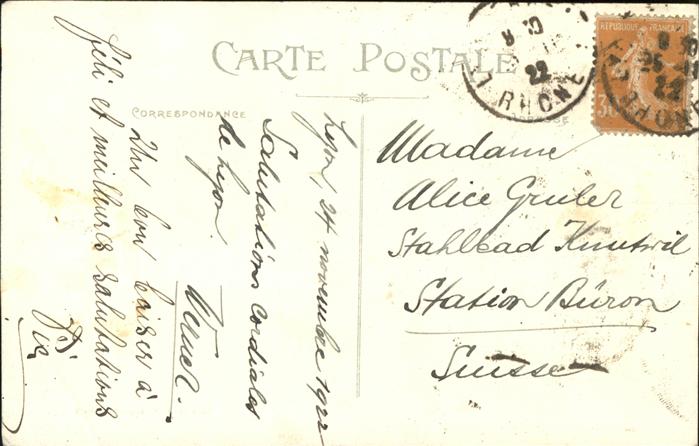 CARTE POSTALE
CORRESPONDANCE
Lyon, 24 novembre 1922
Salutations cordiales
de Lyon.
Un bon baiser à
et meilleures salutations
Madame
Alice Gruber
Stahlbad Knutwil
Station Büron
Suisse
REPUBLIQUE FRANÇAISE
30
22
RHONE
25
22
RHONE